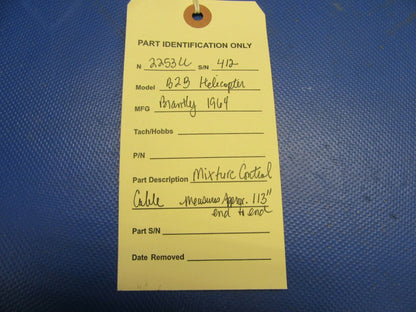 PART IDENTIFICATION ONLY
N 2253U S/N 412
Model B2B Helicopter
MFG Brantly 1964
Tach/Hobbs
P/N
Part Description Mixture Control
Cable Measures Approx. 113"
end to end
Part S/N
Date Removed